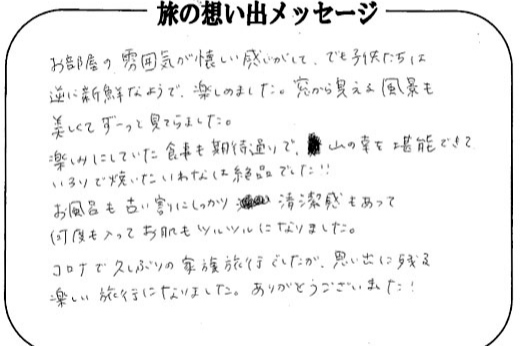 旅の想い出メッセージ
お部屋の雰囲気が懐しい感じがして、でも子供たちは
逆に新鮮なようで、楽しめました。窓から見える風景も
美しくてずーっと見てられました。
楽しみにしていた食事も期待通りで、山の幸を堪能できて
いろりで焼いたいわなは絶品でした!!
お風呂も古い割にしっかり清潔感もあって
何度も入ってお肌もツルツルになりました。
コロナで久しぶりの家族旅行でしたが、思い出に残る
楽しい旅行になりました。ありがとうございました!